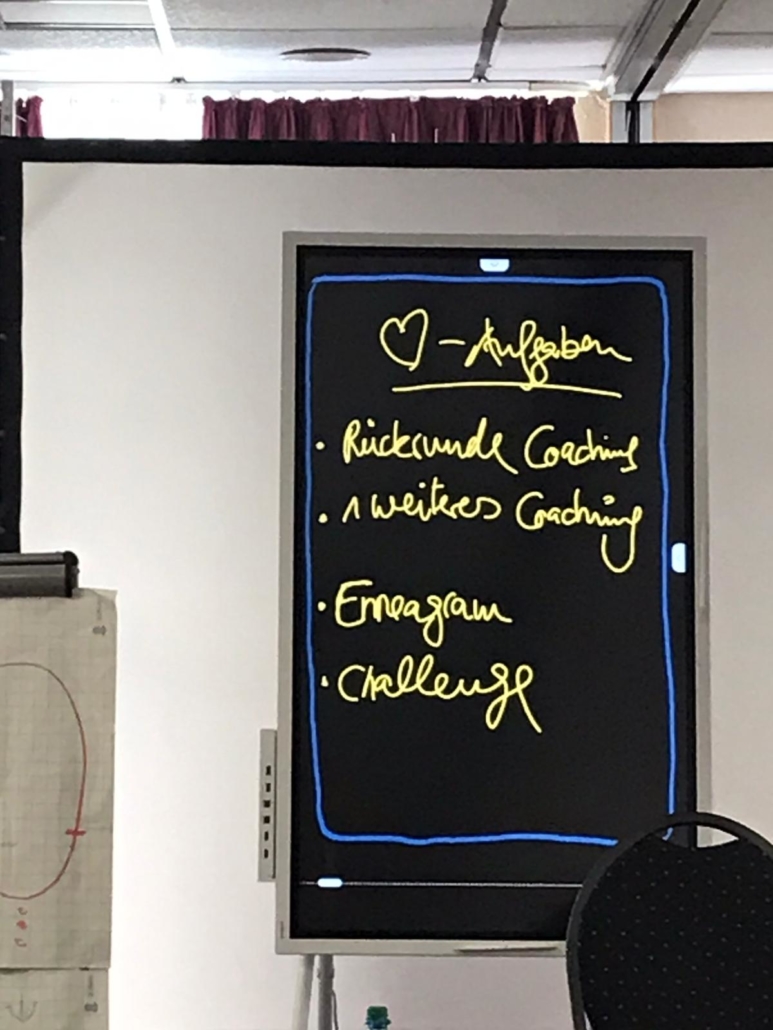 ♡ - Aufgaben
• Rückrunde Coaching
• 1 weiteres Coaching
• Enneagram
• Challenge